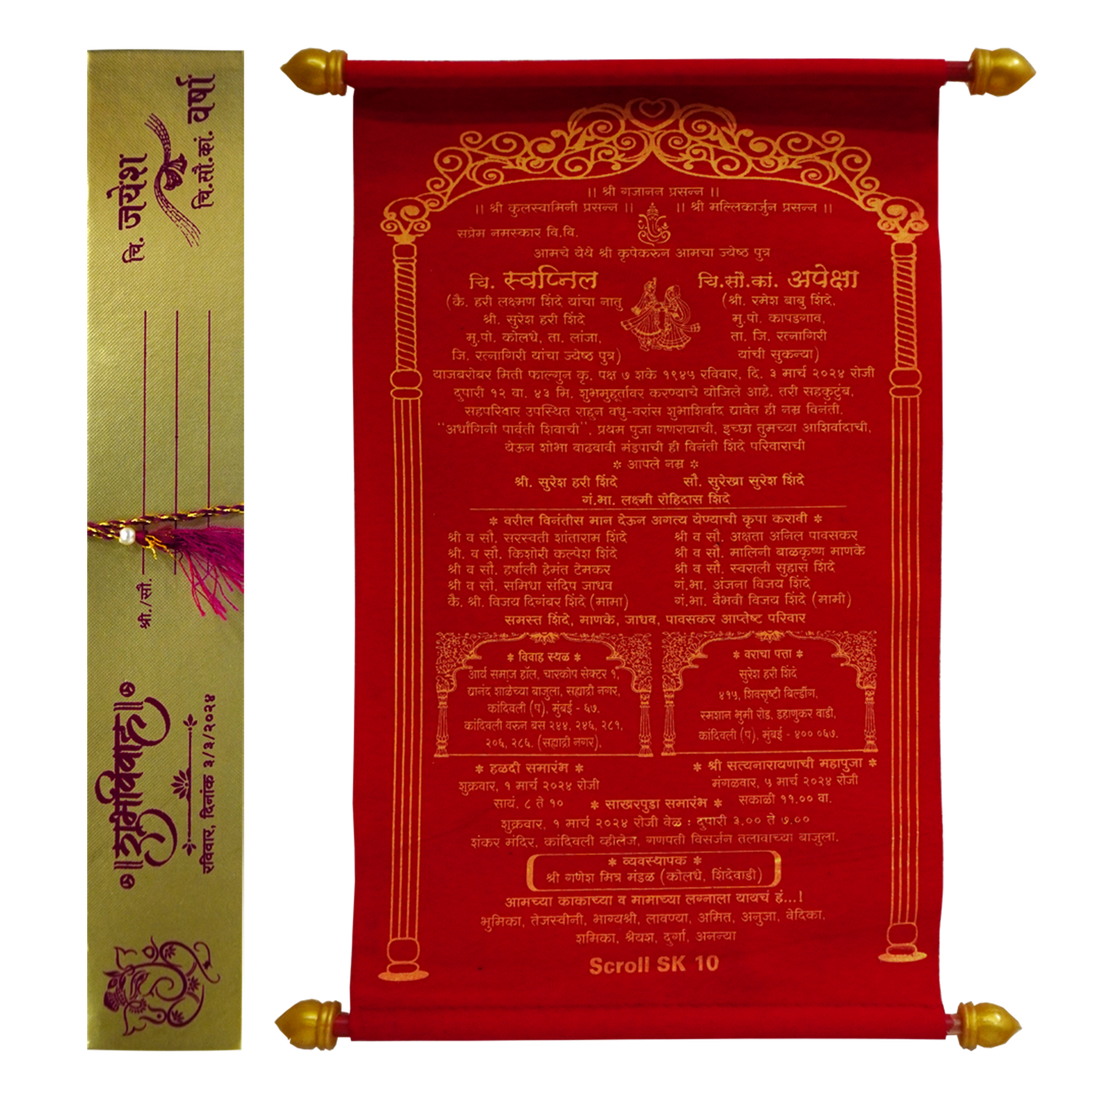 चि. जयेश
चि.सौ.कां. वर्षा
श्री./सौ.
॥ शुभविवाह ॥
रविवार, दिनांक ३/३/२०२४
।। श्री गजानन प्रसन्न ।।
।। श्री कुलस्वामिनी प्रसन्न ।। ।। श्री मल्लिकार्जुन प्रसन्न ।।
सप्रेम नमस्कार वि.वि.
आमचे येथे श्री कृपेकरुन आमचा ज्येष्ठ पुत्र
चि. स्वप्निल
(कै. हरी लक्ष्मण शिंदे यांचा नातु
श्री. सुरेश हरी शिंदे
मु.पो. कोलधे, ता. लांजा,
जि. रत्नागिरी यांचा ज्येष्ठ पुत्र)
चि.सौ.कां. अपेक्षा
(श्री. रमेश बाबु शिंदे,
मु.पो. कापडगाव,
ता. जि. रत्नागिरी
यांची सुकन्या)
याजबरोबर मिती फाल्गुन कृ. पक्ष ७ शके १९४५ रविवार, दि. ३ मार्च २०२४ रोजी
दुपारी १२ वा. ४३ मि. शुभमुहूर्तावर करण्याचे योजिले आहे, तरी सहकुटुंब,
सहपरिवार उपस्थित राहून वधु-वरांस शुभाशिर्वाद द्यावेत ही नम्र विनंती.
"अर्धांगिनी पार्वती शिवाची", प्रथम पुजा गणरायाची, इच्छा तुमच्या आशिर्वादाची,
येऊन शोभा वाढवावी मंडपाची ही विनंती शिंदे परिवाराची
* आपले नम्र *
श्री. सुरेश हरी शिंदे सौ. सुरेखा सुरेश शिंदे
गं.भा. लक्ष्मी रोहिदास शिंदे
* वरील विनंतीस मान देऊन अगत्य येण्याची कृपा करावी *
श्री व सौ. सरस्वती शांताराम शिंदे
श्री. व सौ. किशोरी कल्पेश शिंदे
श्री व सौ. हर्षाली हेमंत टेमकर
श्री व सौ. समिधा संदिप जाधव
कै. श्री. विजय दिगंबर शिंदे (मामा)
श्री व सौ. अक्षता अनिल पावसकर
श्री व सौ. मालिनी बाळकृष्ण माणके
श्री व सौ. स्वराली सुहास शिंदे
गं.भा. अंजना विजय शिंदे
गं.भा. वैभवी विजय शिंदे (मामी)
समस्त शिंदे, माणके, जाधव, पावसकर आप्तेष्ट परिवार
* विवाह स्थळ *
आर्य समाज हॉल, चारकोप सेक्टर १,
द्यानंद शाळेच्या बाजुला, सह्याद्री नगर,
कांदिवली (प), मुंबई - ६७.
कांदिवली वरुन बस २४४, २४६, २८१,
२०६, २८६. (सह्याद्री नगर).
* वराचा पत्ता *
सुरेश हरी शिंदे
४१५, शिवसृष्टी बिल्डींग,
स्मशान भुमी रोड, डहाणुकर वाडी,
कांदिवली (प), मुंबई - ४०० ०६७.
* हळदी समारंभ *
शुक्रवार, १ मार्च २०२४ रोजी
सायं. ८ ते १०
* श्री सत्यनारायणाची महापुजा *
मंगळवार, ५ मार्च २०२४ रोजी
सकाळी ११.०० वा.
* साखरपुडा समारंभ *
शुक्रवार, १ मार्च २०२४ रोजी वेळ : दुपारी ३.०० ते ७.००
शंकर मंदिर, कांदिवली व्हीलेज, गणपती विसर्जन तलावाच्या बाजुला,
* व्यवस्थापक *
श्री गणेश मित्र मंडळ (कोलधे, शिंदेवाडी)
आमच्या काकाच्या व मामाच्या लग्नाला यायचं हं...!
भुमिका, तेजस्वीनी, भाग्यश्री, लावण्या, अमित, अनुजा, वेदिका.
शमिका, श्रेयश, दुर्गा, अनन्या
Scroll SK 10